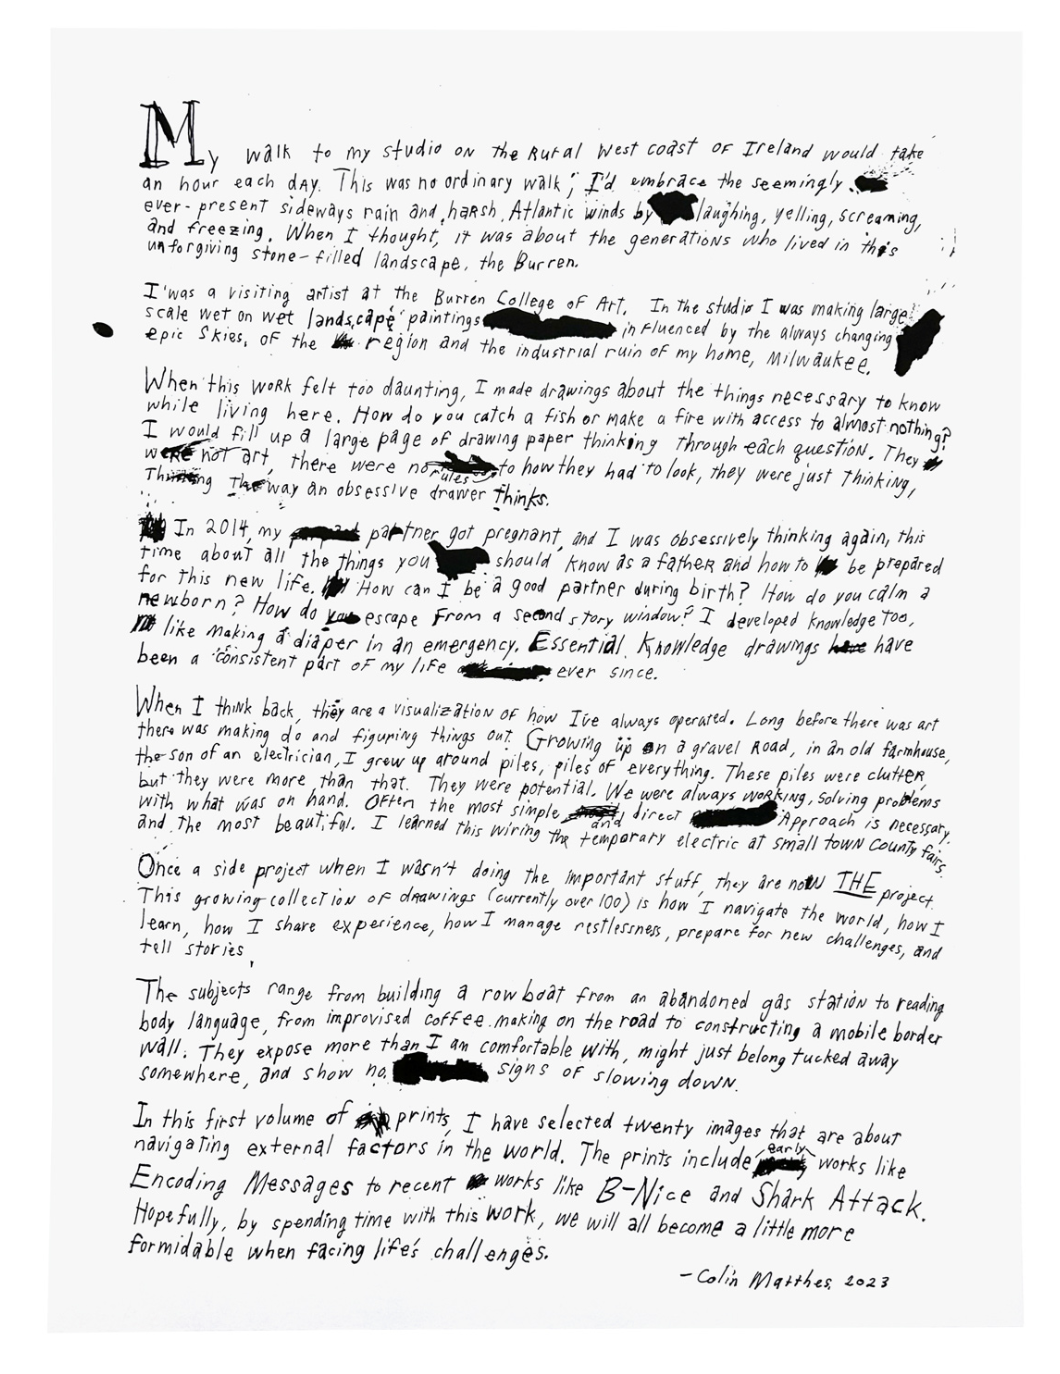 My walk to my studio on the rural west coast of Ireland would take
an hour each day. This was no ordinary walk; I'd embrace the seemingly
ever-present sideways rain and harsh Atlantic winds by laughing, yelling, screaming,
and freezing. When I thought, it was about the generations who lived in this
unforgiving stone-filled landscape, the Burren.
I was a visiting artist at the Burren College of Art. In the studio I was making large
scale wet on wet landscape paintings influenced by the always changing
epic skies, of the region and the industrial ruin of my home, Milwaukee.
When this work felt too daunting, I made drawings about the things necessary to know
while living here. How do you catch a fish or make a fire with access to almost nothing?
I would fill up a large page of drawing paper thinking through each question. They
were not art, there were no rules to how they had to look, they were just thinking,
Thinking The way an obsessive drawer thinks.
In 2014, my partner got pregnant, and I was obsessively thinking again, this
time about all the things you should know as a father and how to be prepared
for this new life. How can I be a good partner during birth? How do you calm a
newborn? How do you escape from a second story window? I developed knowledge too,
like making a diaper in an emergency. Essential Knowledge drawings have
been a consistent part of my life ever since.
When I think back, they are a visualization of how I've always operated. Long before there was art
there was making do and figuring things out. Growing up on a gravel road, in an old farmhouse,
the son of an electrician, I grew up around piles, piles of everything. These piles were clutter,
but they were more than that. They were potential. We were always working, solving problems
with what was on hand. Often the most simple and direct Approach is necessary,
and the most beautiful. I learned this wiring the temporary electric at small town county fairs.
Once a side project when I wasn't doing the important stuff, they are now THE project.
This growing collection of drawings (currently over 100) is how I navigate the world, how I
learn, how I share experience, how I manage restlessness, prepare for new challenges, and
tell stories.
The subjects range from building a row boat from an abandoned gas station to reading
body language, from improvised coffee making on the road to constructing a mobile border
wall. They expose more than I am comfortable with, might just belong tucked away
somewhere, and show no signs of slowing down.
In this first volume of prints, I have selected twenty images that are about
navigating external factors in the world. The prints include early works like
Encoding Messages to recent works like B-Nice and Shark Attack.
Hopefully, by spending time with this work, we will all become a little more
formidable when facing life's challenges.
-Colin Matthes, 2023